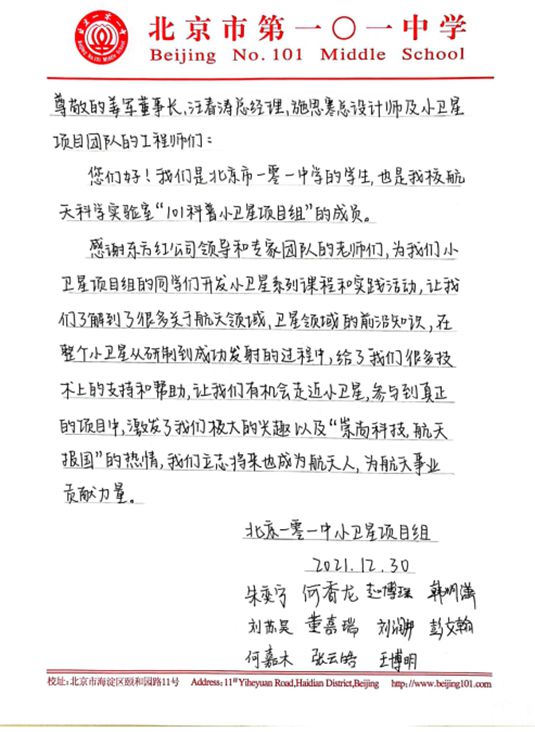 北京一零一
北京市第一〇一中学
Beijing No. 101 Middle School
尊敬的姜军董事长,汪春涛总经理,施思寒总设计师及小卫星
项目团队的工程师们:
您们好!我们是北京市一零一中学的学生,也是我校航
天科学实验室“101科普小卫星项目组”的成员。
感谢东方红公司领导和专家团队的老师们,为我们小
卫星项目组的同学们开发小卫星系列课程和实践活动,让我
们了解到了很多关于航天领域、卫星领域的前沿知识,在
整个小卫星从研制到成功发射的过程中,给了我们很多技
术上的支持和帮助,让我们有机会走近小卫星,参与到真正
的项目中,激发了我们极大的兴趣以及“崇尚科技,航天
报国”的热情,我们立志将来也成为航天人,为航天事业
贡献力量。
北京一零一中小卫星项目组
2021.12.30
朱奕宁 何香龙 赵博琛 韩明潇
刘苏昊 董嘉瑞 彭文翰
何嘉木 张云皓 王博明
校址:北京市海淀区颐和园路11号 Address: 11# Yiheyuan Road,Haidian District,Beijing http://www.beijing101.com